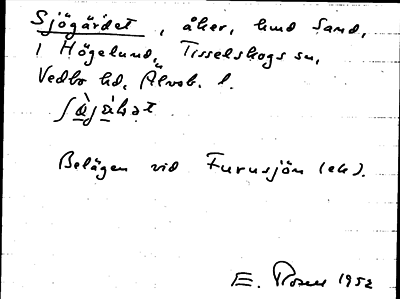 Sjögärdet, åker, hmd Sand,
i Högelund, Tisselskogs sn,
Vedbo hd, Älvsb. l.
Belägen vid Furusjön (ek).
E. Rosell 1952